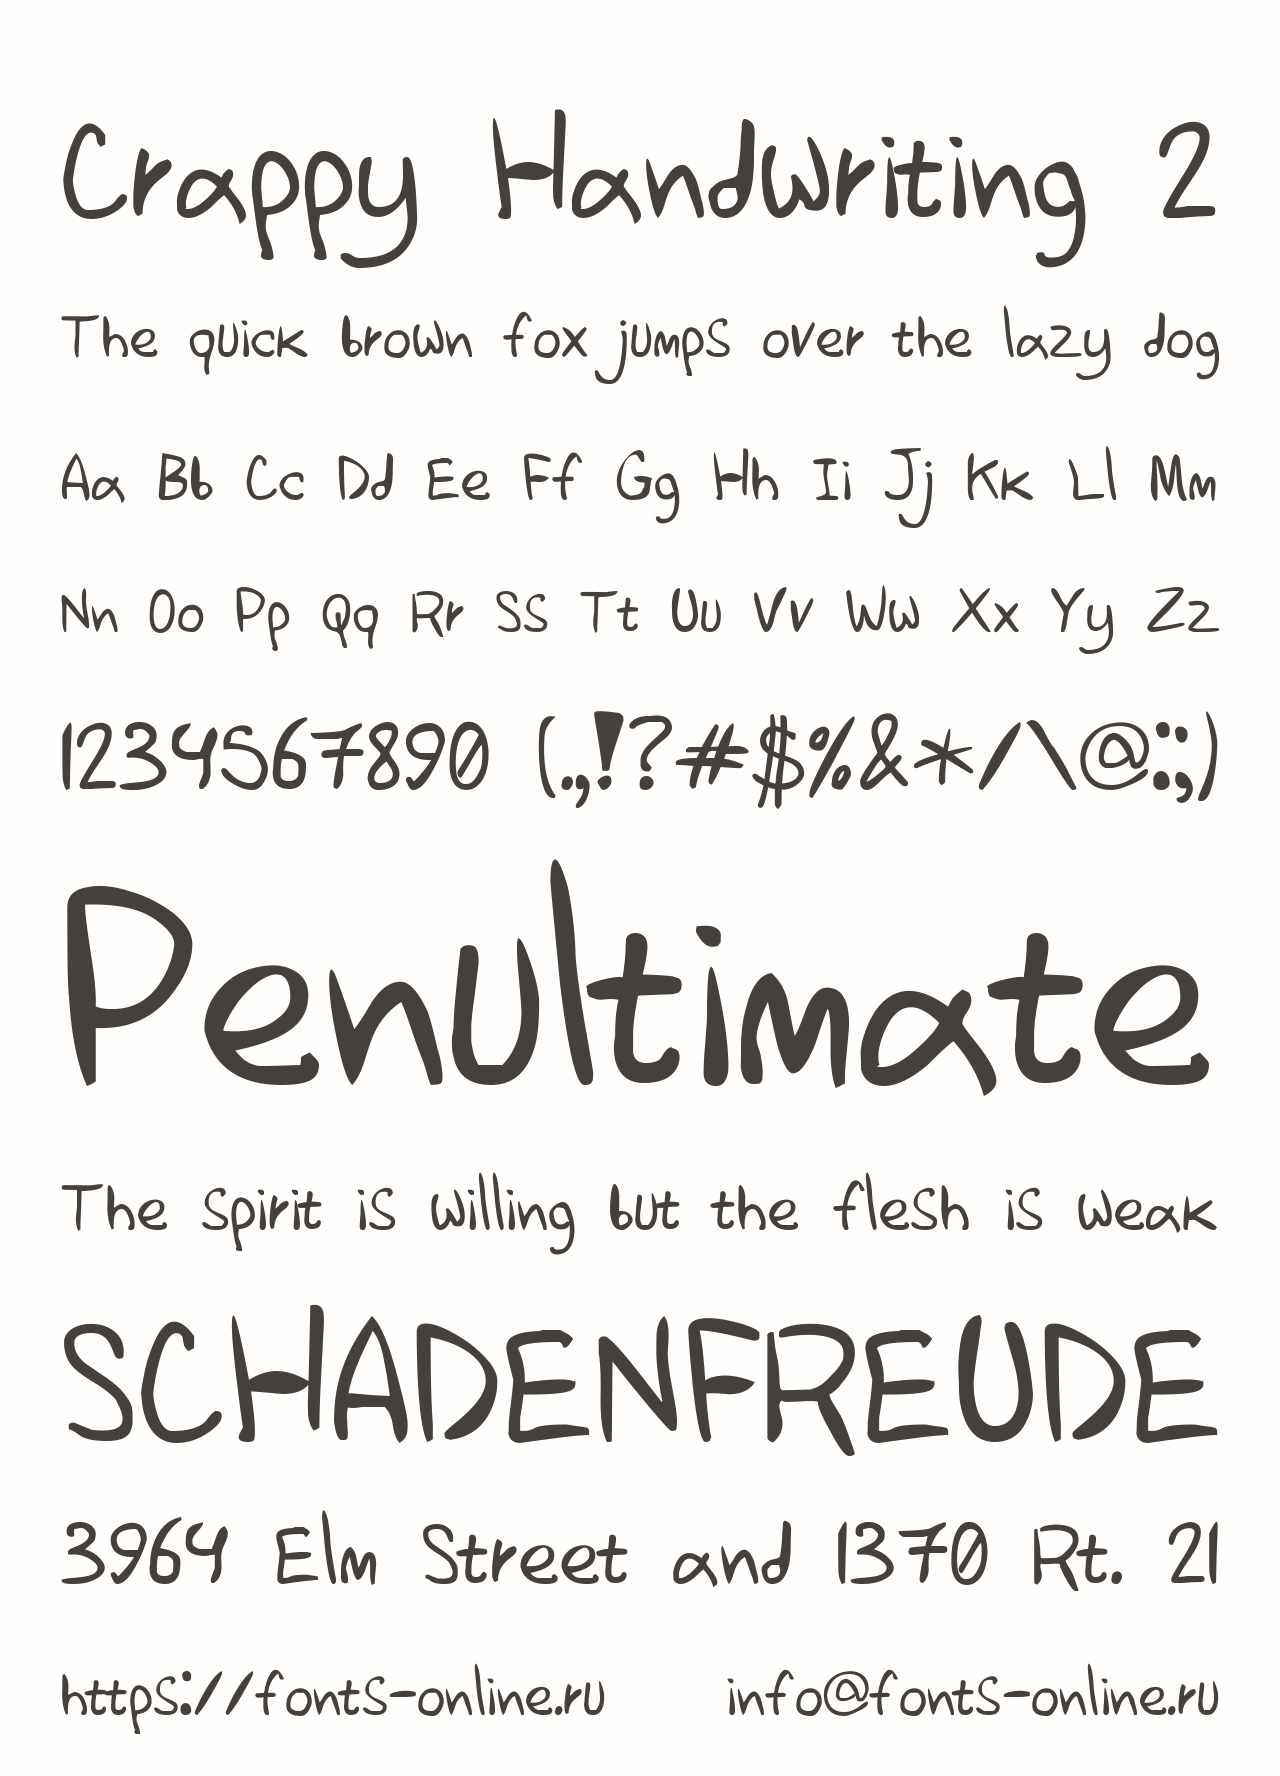 Crappy Handwriting 2
The quick brown fox jumps over the lazy dog
Aa Bb Cc Dd Ee Ff Gg Hh Ii Jj Kk Ll Mm
Nn Oo Pp Qq Rr Ss Tt Uu Vv Ww Xx Yy Zz
1234567890 (.,!?#$%&*/\@:;)
Penultimate
The spirit is willing but the flesh is weak
SCHADENFREUDE
3964 Elm Street and 1370 Rt. 21
https://fonts-online.ru info@fonts-online.ru